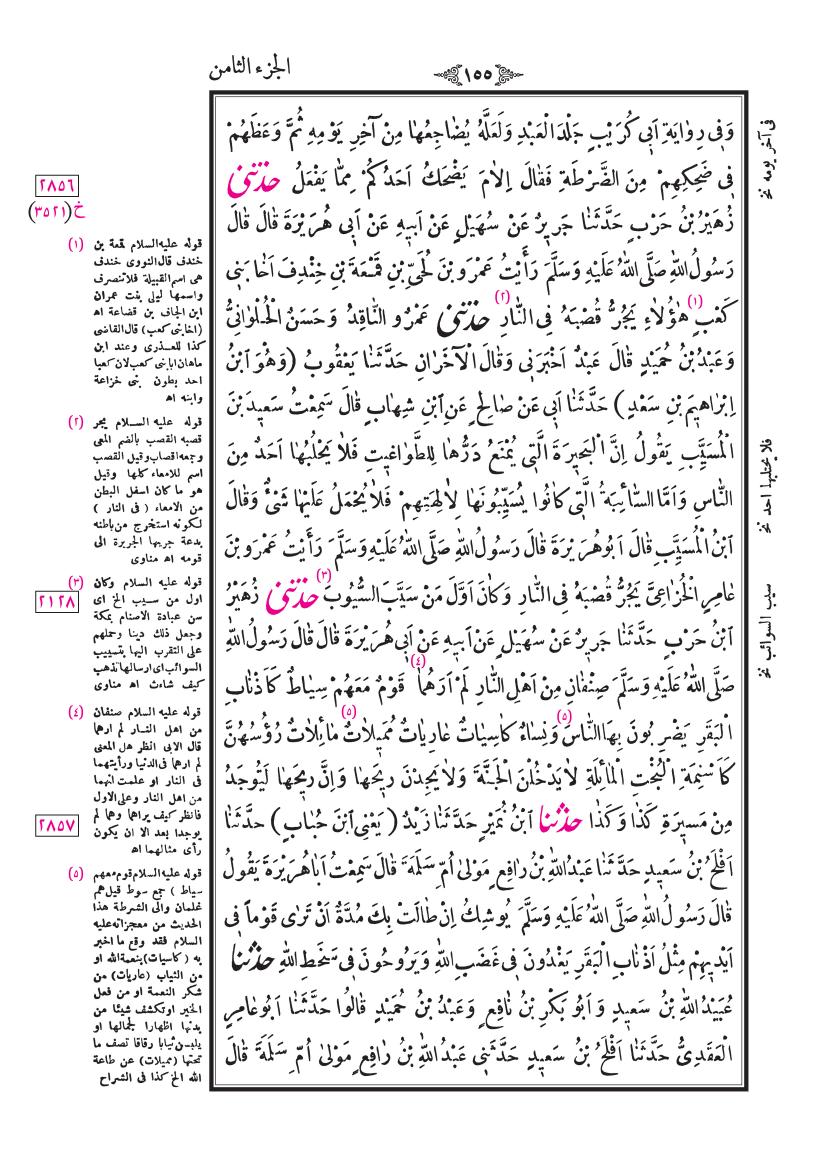 الجزء الثامن
١٥٥
وَفِي رِوَايَةِ اَبِي كُرَيْبٍ جَلْدَ الْعَبْدِ وَلَعَلَّهُ يُضَاجِعُهَا مِنْ آخِرِ يَوْمِهِ ثُمَّ وَعَظَهُمْ
فِي ضَحِكِهِمْ مِنَ الضَّرْطَةِ فَقَالَ اِلَامَ يَضْحَكُ اَحَدُكُمْ مِمَّا يَفْعَلُ حَدَّثَنِي
زُهَيْرُ بْنُ حَرْبٍ حَدَّثَنَا جَرِيرٌ عَنْ سُهَيْلٍ عَنْ اَبِيهِ عَنْ اَبِي هُرَيْرَةَ قَالَ قَالَ
رَسُولُ اللهِ صَلَّى اللهُ عَلَيْهِ وَسَلَّمَ رَأَيْتُ عَمْرَو بْنَ لُحَيِّ بْنِ قَمَعَةَ بْنِ خِنْدِفَ اَخَا بَنِي
كَعْبٍ (١) هٰؤُلَاءِ يَجُرُّ قُصْبَهُ فِي النَّارِ (٢) حَدَّثَنِي عَمْرٌو النَّاقِدُ وَحَسَنٌ الْحُلْوَانِيُّ
وَعَبْدُ بْنُ حُمَيْدٍ قَالَ عَبْدٌ اَخْبَرَنِي وَقَالَ الْآخَرَانِ حَدَّثَنَا يَعْقُوبُ (وَهُوَ ابْنُ
اِبْرَاهِيمَ بْنِ سَعْدٍ) حَدَّثَنَا اَبِي عَنْ صَالِحٍ عَنِ ابْنِ شِهَابٍ قَالَ سَمِعْتُ سَعِيدَ بْنَ
الْمُسَيَّبِ يَقُولُ اِنَّ الْبَحِيرَةَ الَّتِي يُمْنَعُ دَرُّهَا لِلطَّوَاغِيتِ فَلَا يَحْلُبُهَا اَحَدٌ مِنَ
النَّاسِ وَاَمَّا السَّائِبَةُ الَّتِي كَانُوا يُسَيِّبُونَهَا لِآلِهَتِهِمْ فَلَا يُحْمَلُ عَلَيْهَا شَيْءٌ وَقَالَ
ابْنُ الْمُسَيَّبِ قَالَ اَبُو هُرَيْرَةَ قَالَ رَسُولُ اللهِ صَلَّى اللهُ عَلَيْهِ وَسَلَّمَ رَأَيْتُ عَمْرَو بْنَ
عَامِرٍ الْخُزَاعِيَّ يَجُرُّ قُصْبَهُ فِي النَّارِ وَكَانَ اَوَّلَ مَنْ سَيَّبَ السُّيُوبَ (٣) حَدَّثَنِي زُهَيْرُ
ابْنُ حَرْبٍ حَدَّثَنَا جَرِيرٌ عَنْ سُهَيْلٍ عَنْ اَبِيهِ عَنْ اَبِي هُرَيْرَةَ قَالَ قَالَ رَسُولُ اللهِ
صَلَّى اللهُ عَلَيْهِ وَسَلَّمَ صِنْفَانِ مِنْ اَهْلِ النَّارِ لَمْ اَرَهُمَا (٤) قَوْمٌ مَعَهُمْ سِيَاطٌ كَاَذْنَابِ
الْبَقَرِ يَضْرِبُونَ بِهَا النَّاسَ (٥) وَنِسَاءٌ كَاسِيَاتٌ عَارِيَاتٌ مُمِيلَاتٌ (٥) مَائِلَاتٌ رُؤُسُهُنَّ
كَاَسْنِمَةِ الْبُخْتِ الْمَائِلَةِ لَا يَدْخُلْنَ الْجَنَّةَ وَلَا يَجِدْنَ رِيحَهَا وَاِنَّ رِيحَهَا لَيُوجَدُ
مِنْ مَسِيرَةِ كَذَا وَكَذَا حَدَّثَنَا ابْنُ نُمَيْرٍ حَدَّثَنَا زَيْدٌ (يَعْنِي ابْنَ حُبَابٍ) حَدَّثَنَا
اَفْلَحُ بْنُ سَعِيدٍ حَدَّثَنَا عَبْدُ اللهِ بْنُ رَافِعٍ مَوْلَى اُمِّ سَلَمَةَ قَالَ سَمِعْتُ اَبَا هُرَيْرَةَ يَقُولُ
قَالَ رَسُولُ اللهِ صَلَّى اللهُ عَلَيْهِ وَسَلَّمَ يُوشِكُ اِنْ طَالَتْ بِكَ مُدَّةٌ اَنْ تَرَى قَوْماً فِي
اَيْدِيهِمْ مِثْلُ اَذْنَابِ الْبَقَرِ يَغْدُونَ فِي غَضَبِ اللهِ وَيَرُوحُونَ فِي سَخَطِ اللهِ حَدَّثَنَا
عُبَيْدُ اللهِ بْنُ سَعِيدٍ وَاَبُو بَكْرِ بْنُ نَافِعٍ وَعَبْدُ بْنُ حُمَيْدٍ قَالُوا حَدَّثَنَا اَبُو عَامِرٍ
الْعَقَدِيُّ حَدَّثَنَا اَفْلَحُ بْنُ سَعِيدٍ حَدَّثَنِي عَبْدُ اللهِ بْنُ رَافِعٍ مَوْلَى اُمِّ سَلَمَةَ قَالَ
في آخر يومه نخ
فلا يحتلبها احد نخ
سيب السوائب نخ
٢٨٥٦
خ(٣٥٢١)
٢١٢٨
٢٨٥٧
(١) قوله عليه السلام قمعة بن
خندف قال النووى خندف
هى اسم القبيلة فلا تنصرف
واسمها ليلى بنت عمران
ابن الجاف بن قضاعة اه
(اخا بنى كعب) قال القاضى
كذا للعذرى وعند ابن
ماهان ابا بنى كعب لان كعبا
احد بطون بنى خزاعة
وابنه اه
(٢) قوله عليه السلام يجر
قصبه القصب بالضم المعى
وجمعه اقصاب وقيل القصب
اسم للامعاء كلها وقيل
هو ما كان اسفل البطن
من الامعاء (فى النار)
لكونه استخرج من باطنه
بدعة جربها الجريرة الى
قومه اه مناوى
(٣) قوله عليه السلام وكان
اول من سيب الخ اى
سن عبادة الاصنام بمكة
وجعل ذلك دينا وحملهم
على التقرب اليها بتسييب
السوائب اى ارسالها تذهب
كيف شاءت اه مناوى
(٤) قوله عليه السلام صنفان
من اهل النار لم ارهما
قال الابى انظر هل المعنى
لم ارهما فى الدنيا ورأيتهما
فى النار او علمت انهما
من اهل النار وعلى الاول
فانظر كيف يراهما وهما لم
يوجدا بعد الا ان يكون
رأى مثالهما اه
(٥) قوله عليه السلام قوم معهم
سياط) جمع سوط قيل هم
غلمان والى الشرطة هذا
الحديث من معجزاته عليه
السلام فقد وقع ما اخبر
به (كاسيات) بنعمة الله او
من الثياب (عاريات) من
شكر النعمة او من فعل
الخير او تكشف شيئا من
بدنها اظهارا لجمالها او
يلبسن ثيابا رقاقا تصف ما
تحتها (مميلات) عن طاعة
الله الخ كذا فى الشراح